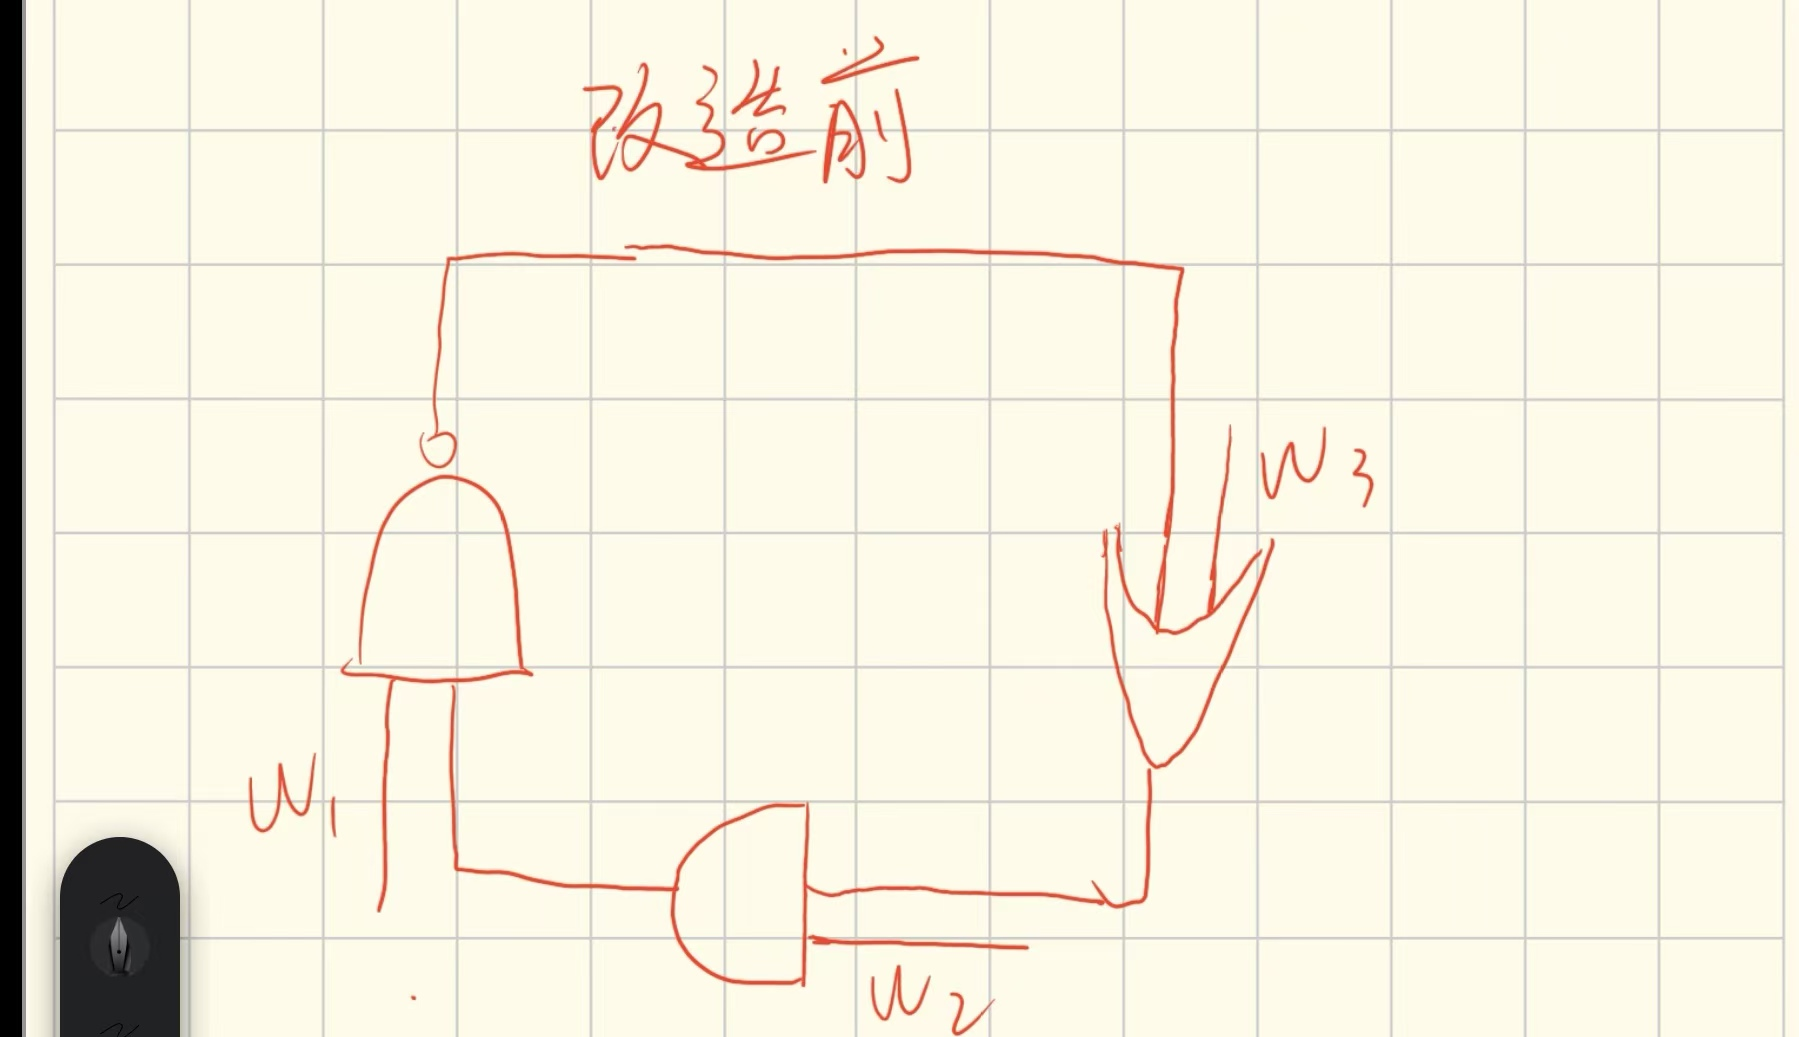 改造前
W3
W1
W2